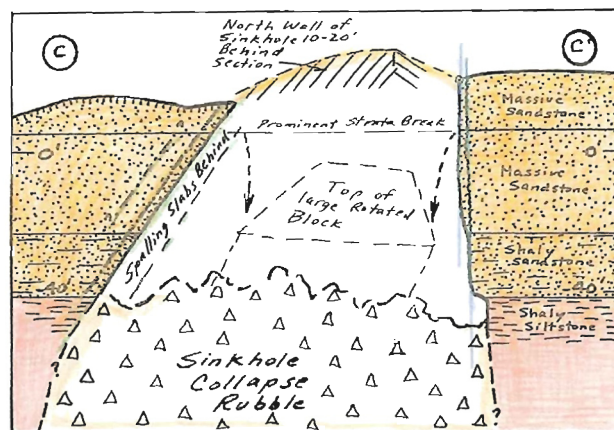 C
North Wall of
Sinkhole 10-20'
Behind
Section
C'
Massive
Sandstone
Prominent Strata Break
0'
0'
Massive
Sandstone
Spalling Slabs Behind
Top of
large Rotated
Block
Shaly
Sandstone
40
40
Shaly
Siltstone
Sinkhole
Collapse
Rubble
?
?